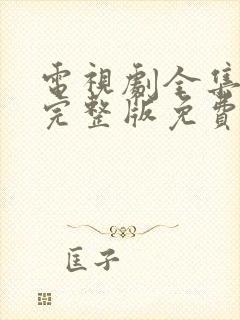 電視劇全集
完整版免費
匡子